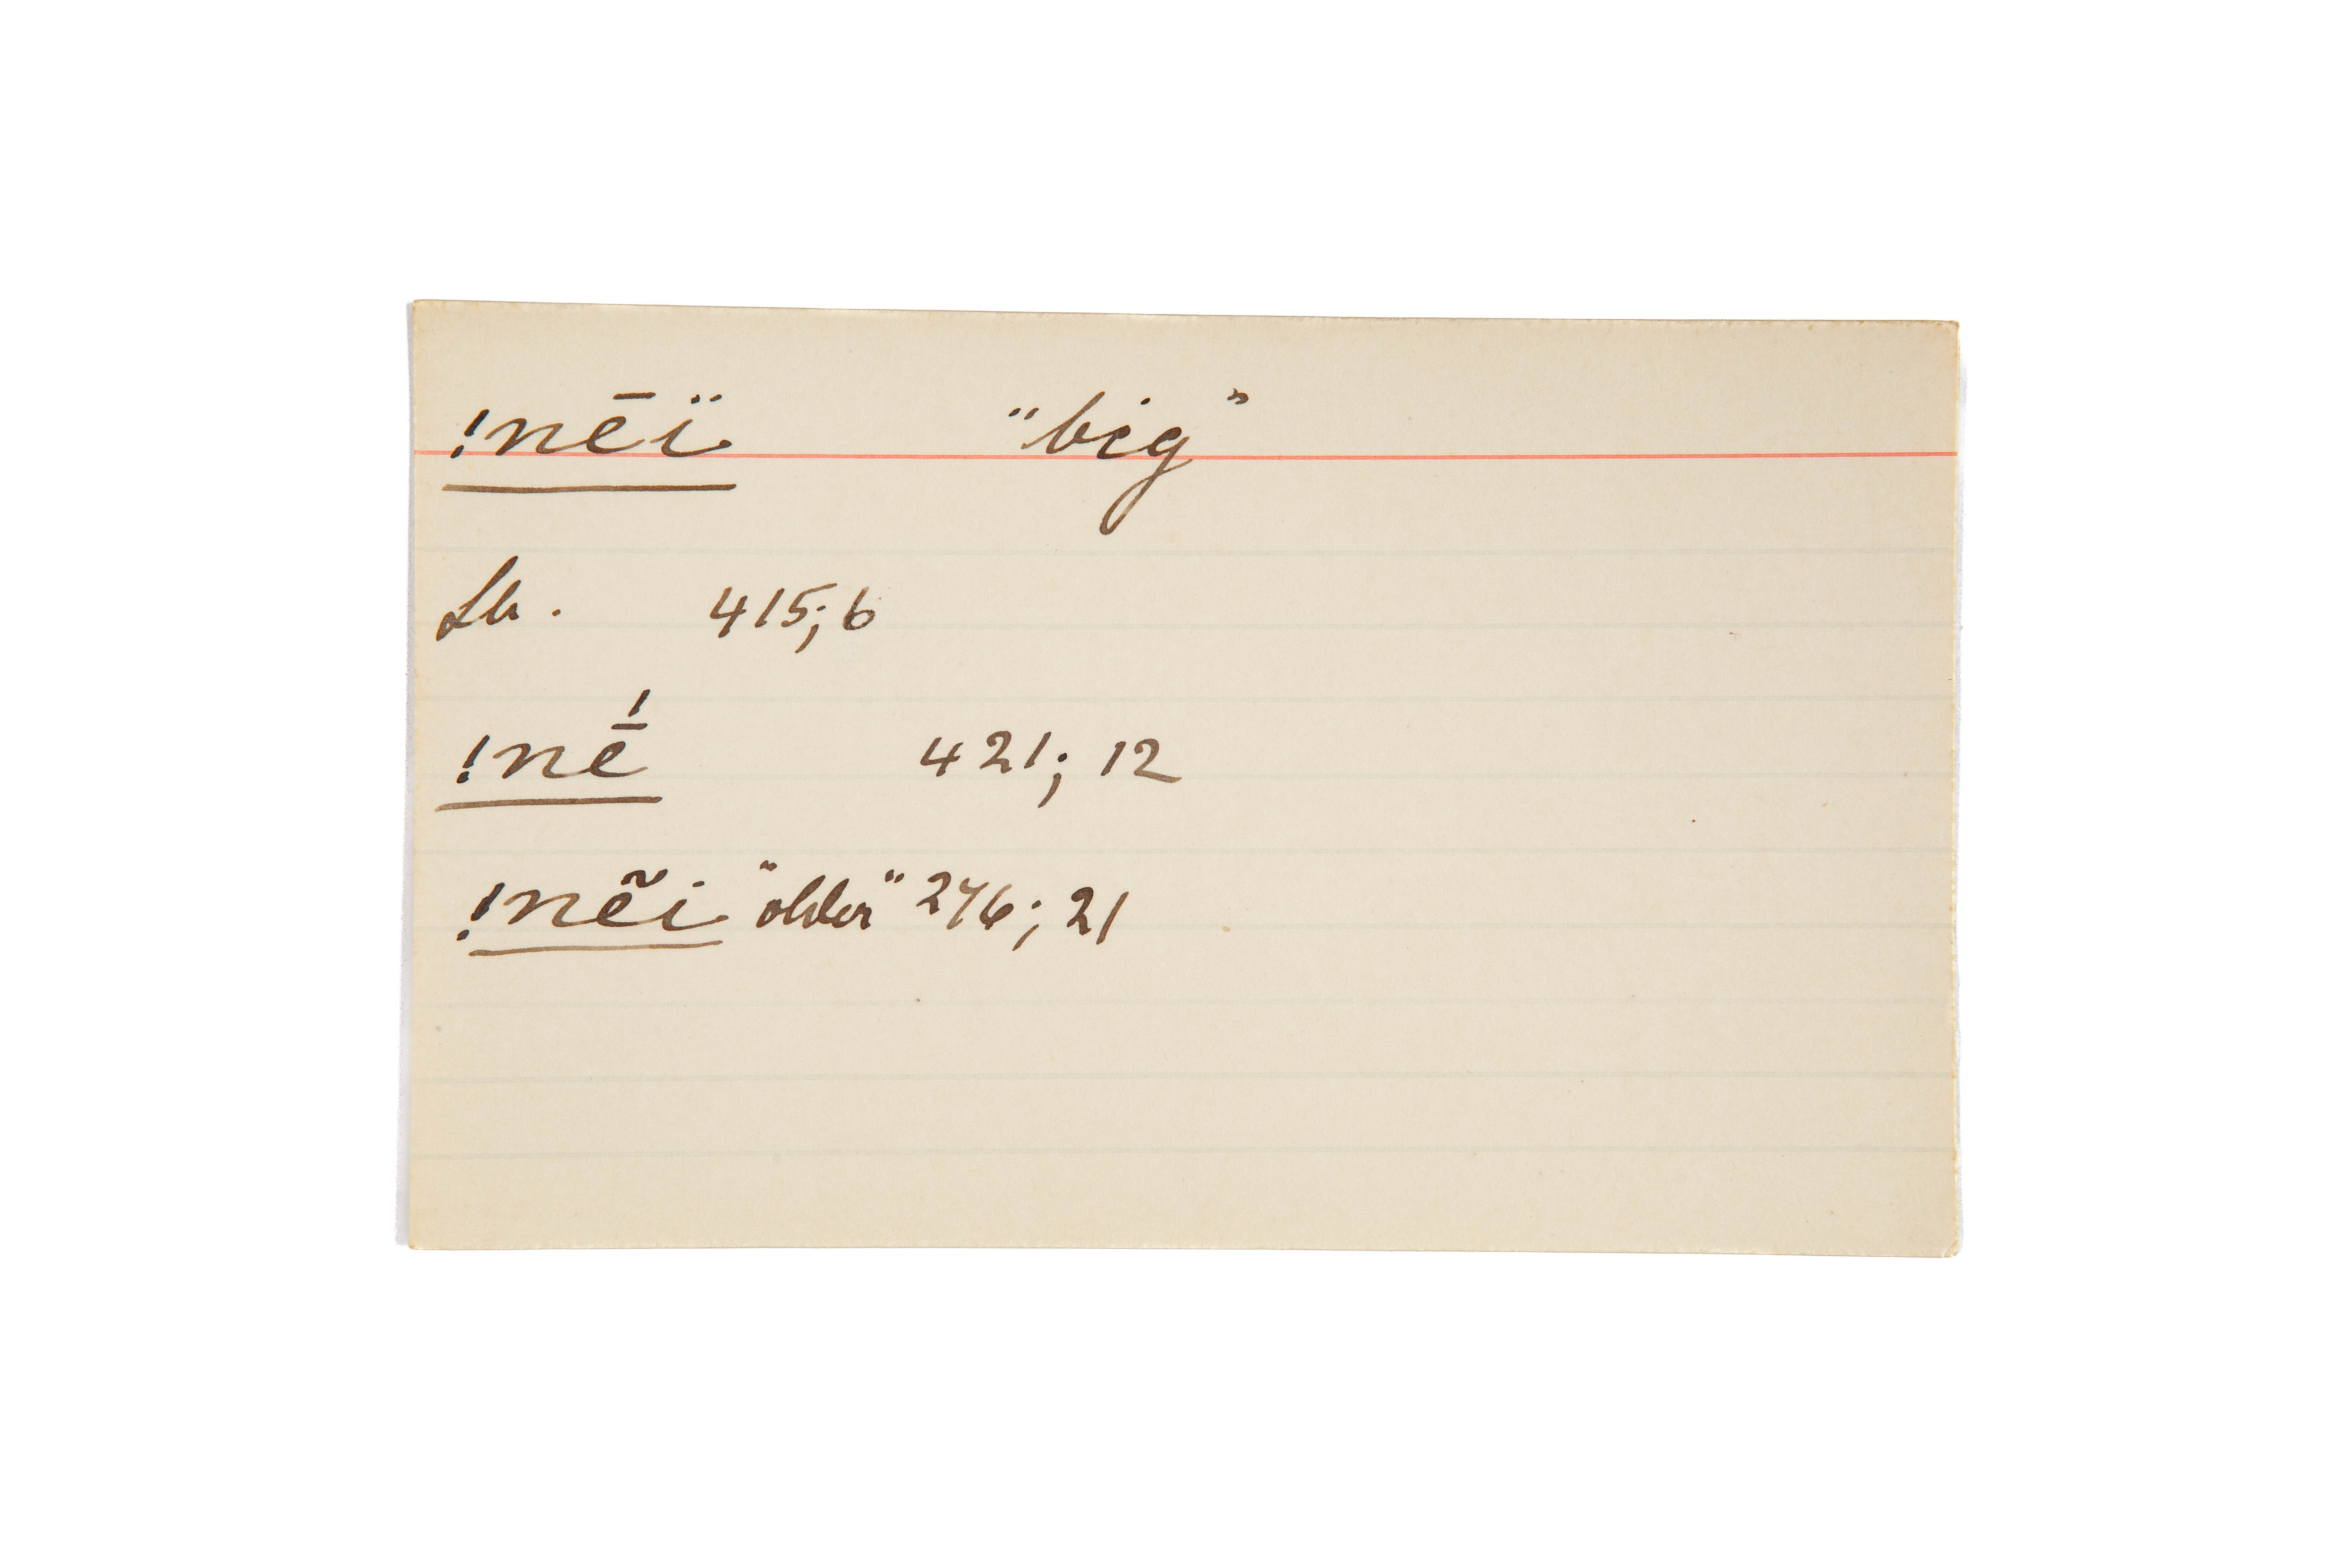 !nēï "big"
Lb. 415;6
!nḗ 421; 12
!nẽi "older" 276; 21